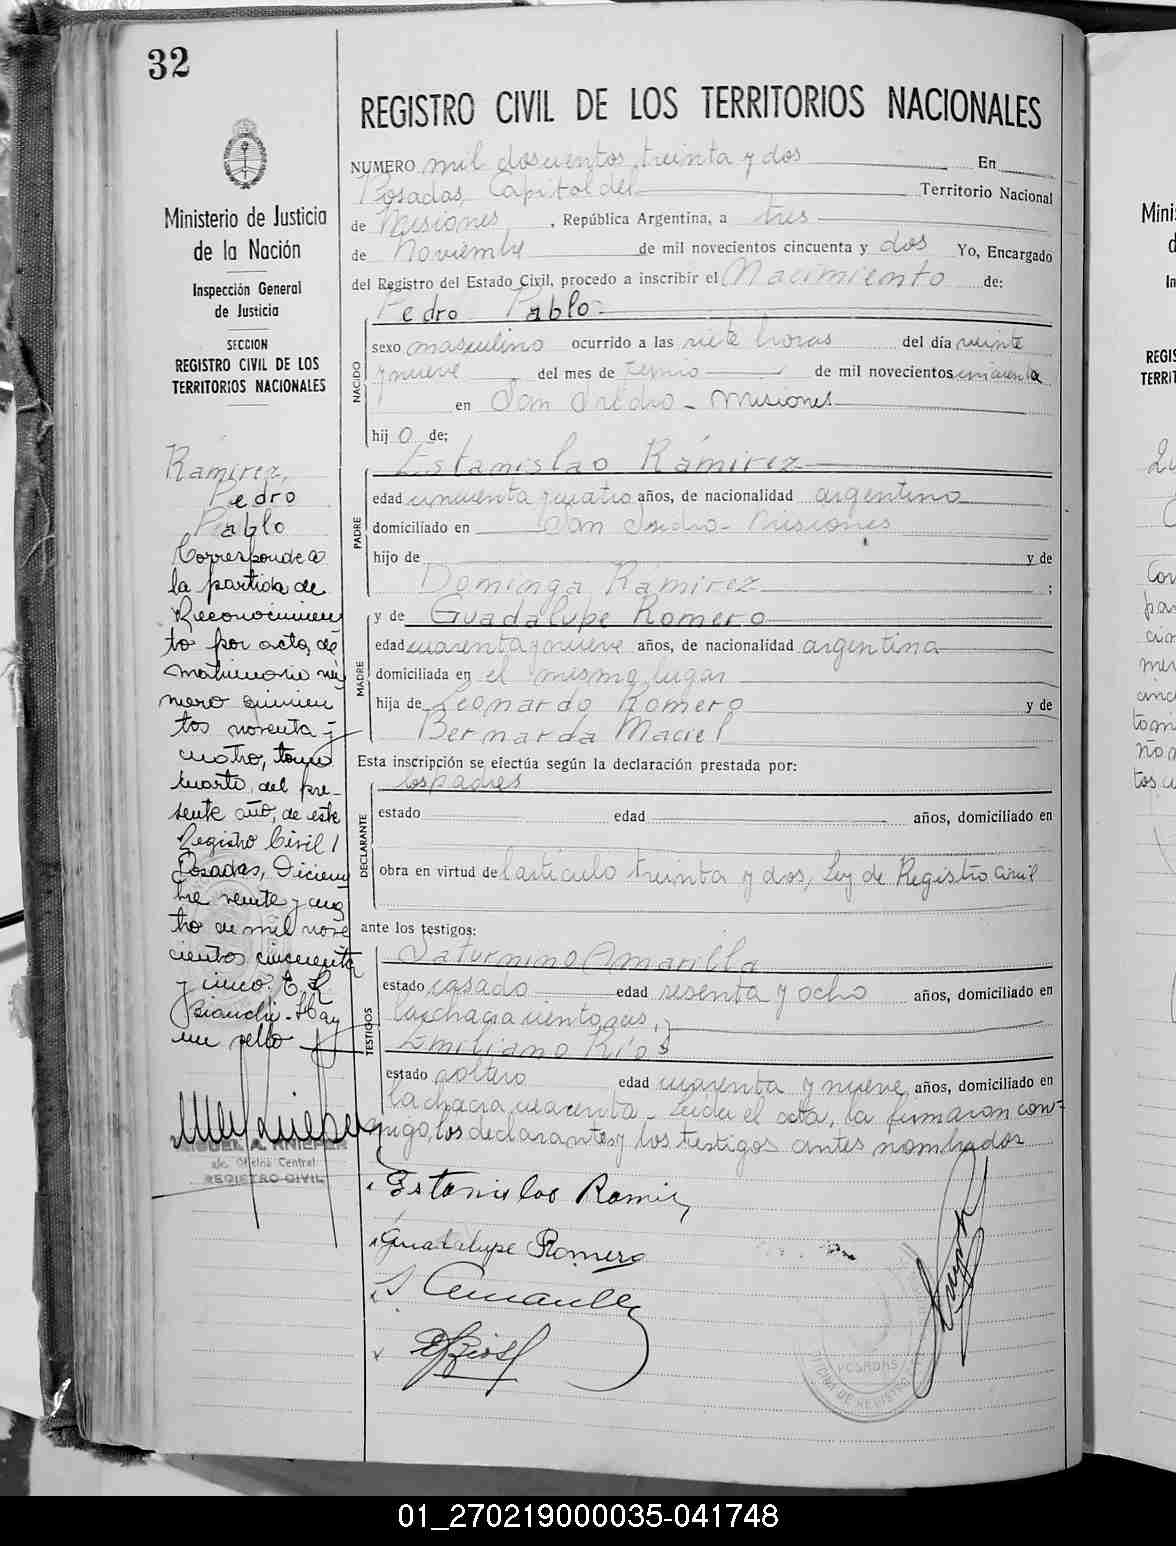 32
REGISTRO CIVIL DE LOS TERRITORIOS NACIONALES
Ministerio de Justicia
de la Nación
Inspección General
de Justicia
SECCION
REGISTRO CIVIL DE LOS
TERRITORIOS NACIONALES
Ramirez,
Pedro
Pablo
Corresponde a
la partida de
Reconocimien
to por acta de
matrimonio nú
mero quinien
tos noventa
cuatro, tomo
cuarto, del pre-
sente año, de este
Registro Civil
Posadas, Diciem
bre veinte y cua
tro de mil nove
cientos cincuenta
y cinco. E. L.
Hay
un sello
MIGUEL A. KNIEPER
Oficina Central
REGISTRO CIVIL
NUMERO mil doscientos treinta y dos En
Posadas, Capital del Territorio Nacional
de Misiones, República Argentina, a tres
de Noviembre de mil novecientos cincuenta y dos Yo, Encargado
del Registro del Estado Civil, procedo a inscribir el Nacimiento de:
Pedro Pablo
NACIDO
sexo masculino ocurrido a las siete horas del día veinte
y nueve del mes de Junio de mil novecientos cincuenta
en San Isidro - Misiones
hijo de;
PADRE
Estanislao Ramirez
edad cincuenta y cuatro años, de nacionalidad argentino
domiciliado en San Isidro - Misiones
hijo de y de
Dominga Ramirez ;
MADRE
y de Guadalupe Romero
edad cuarenta y nueve años, de nacionalidad argentina
domiciliada en el mismo lugar
hija de Leonardo Romero y de
Bernarda Maciel
Esta inscripción se efectúa según la declaración prestada por:
los padres
DECLARANTE
estado edad años, domiciliado en
obra en virtud del artículo treinta y dos, Ley de Registro Civil
ante los testigos:
TESTIGOS
Saturnino Amarilla
estado casado edad sesenta y ocho años, domiciliado en
la chacra ciento seis,
Emiliano Ríos
estado soltero edad cuarenta y nueve años, domiciliado en
la chacra cuarenta - Leida el acta, la firmaron con-
migo, los declarantes y los testigos antes nombrados
Estanislao Ramirez
Guadalupe Romero
S Amarilla
E Rios
POSADAS
OFICINA DE REGISTRO
01_270219000035-041748